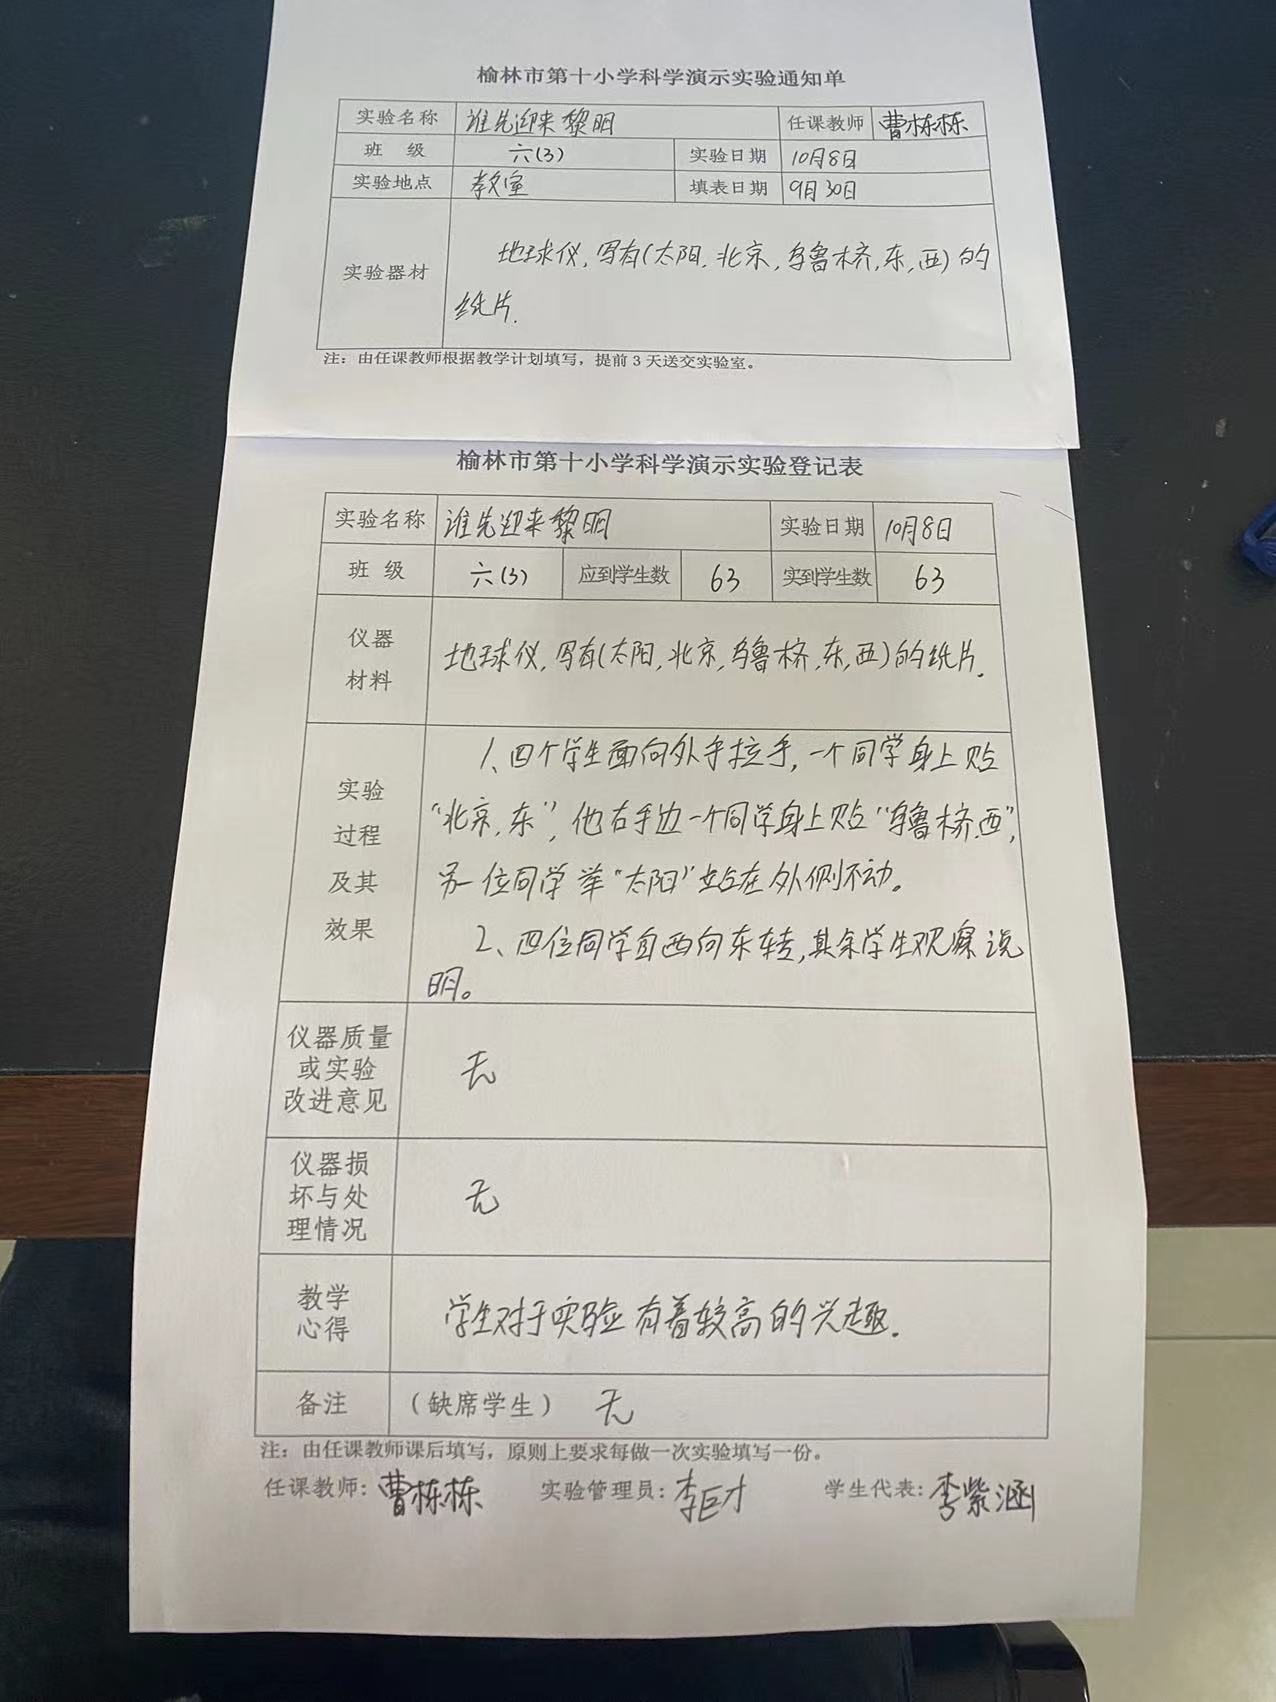 榆林市第十小学科学演示实验通知单
实验名称 谁先迎来黎明 任课教师 曹栋栋
班 级 六(3) 实验日期 10月8日
实验地点 教室 填表日期 9月30日
实验器材 地球仪,写有(太阳,北京,乌鲁木齐,东,西)的
纸片.
注：由任课教师根据教学计划填写，提前3天送交实验室。
榆林市第十小学科学演示实验登记表
实验名称 谁先迎来黎明 实验日期 10月8日
班 级 六(3) 应到学生数 63 实到学生数 63
仪器
材料
地球仪,写有(太阳,北京,乌鲁木齐,东,西)的纸片.
实验
过程
及其
效果
1、四个学生面向外手拉手,一个同学身上贴
“北京,东”,他右手边一个同学身上贴“乌鲁木齐,西”,
另一位同学举“太阳”站在外侧不动。
2、四位同学自西向东转,其余学生观察说
明。
仪器质量
或实验
改进意见
无
仪器损
坏与处
理情况
无
教学
心得
学生对于实验有着较高的兴趣.
备注 （缺席学生） 无
注：由任课教师课后填写，原则上要求每做一次实验填写一份。
任课教师：曹栋栋 实验管理员：李巨才 学生代表：李紫涵